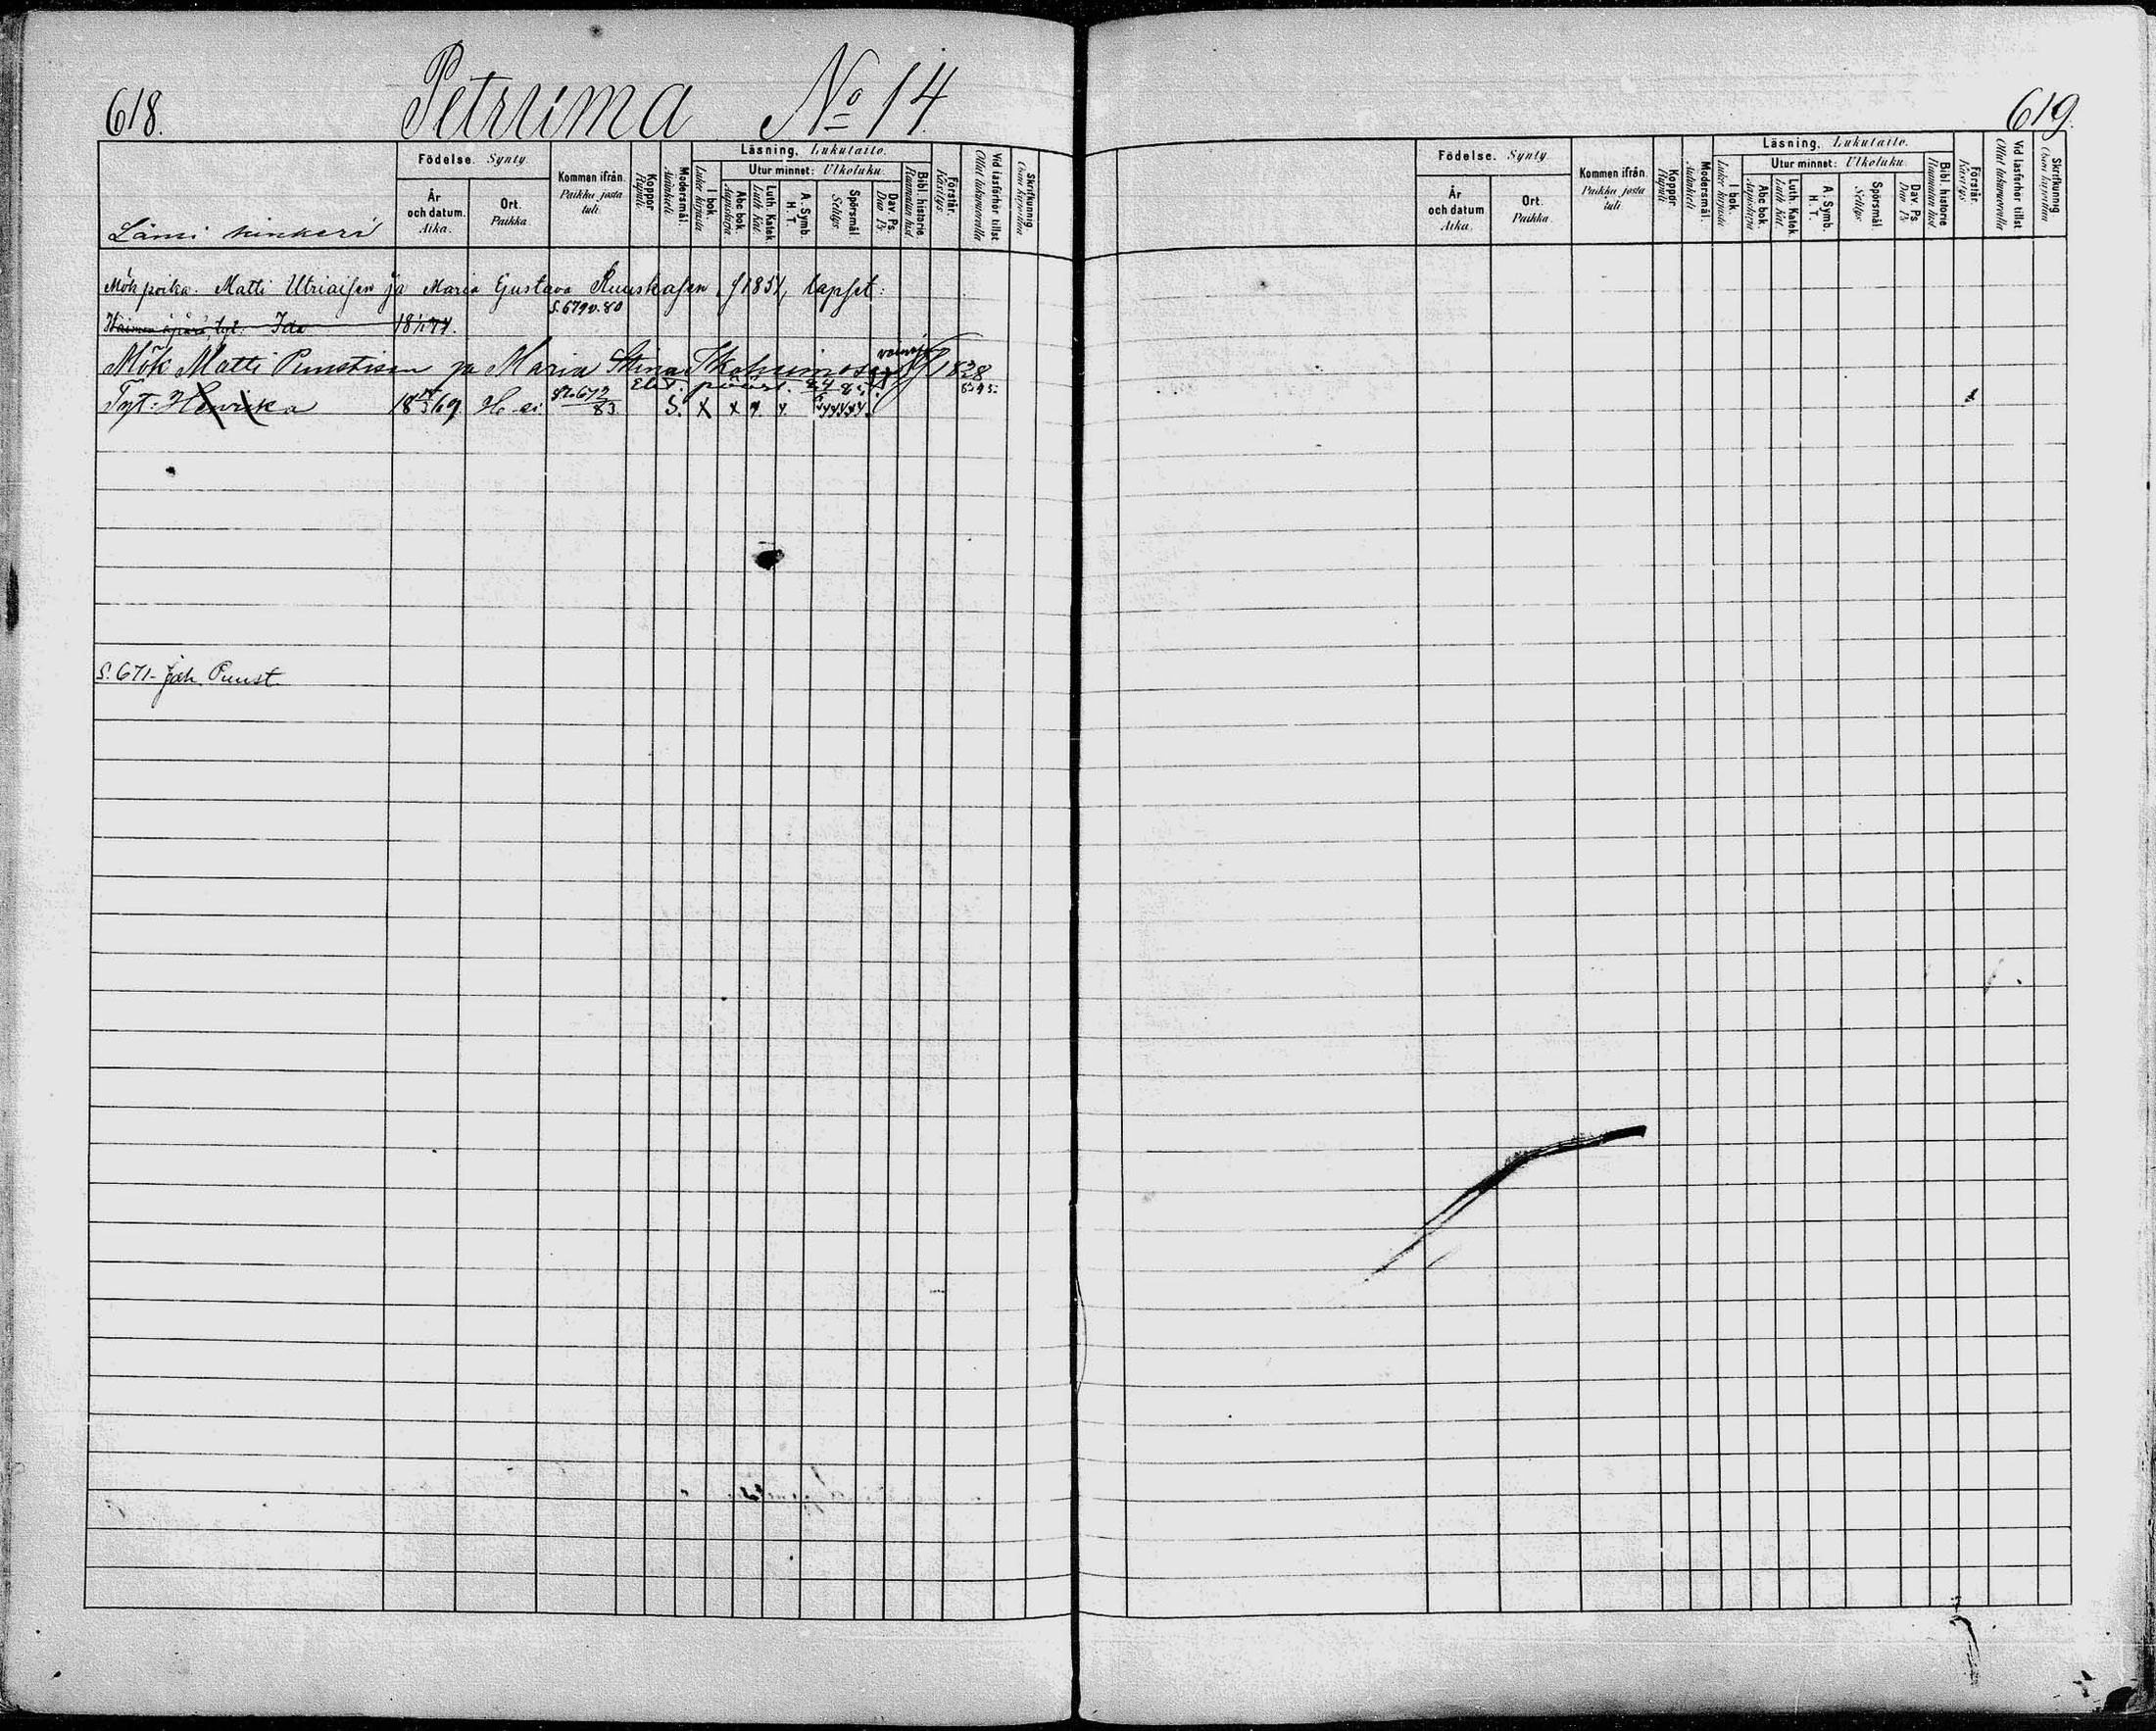 618.
Petruma No 14.
Länsi kinkeri
Födelse. Synty.
År och datum. Aika.
Ort. Paikka.
Kommen ifrån. Paikka josta tuli.
Koppor Rupuli
Modersmål. Äidinkieli
Läsning. Lukutaito.
I bok. Lukee kirjasta
Utur minnet: Ulkoluku.
Abc bok. Aapiskirja
Luth. Katek. Luth. Kat.
A. Symb. H. T.
Spörsmål Selitys
Dav. Ps. Dav. Ps.
Bibl. historie. Raamatun hist.
Förstår. Käsitys
Vid läsförhör tillst Ollut lukuvuorolla
Skrifkunnig Osaa kirjoittaa
Mök poika. Matti Utriaisen ja Maria Gustava Ruuskasen f 1854, lapset:
S. 679 v. 80
tyt. Ida 18 74.
Mök Matti Punstisen ja Maria Stina 1838
Tyt: Henrika 18 69 H. ei 83. S. X x
S. 671- Joh. Puust
619.
Födelse. Synty.
År och datum Aika.
Ort. Paikka.
Kommen ifrån. Paikka josta tuli
Koppor Rupuli
Modersmål. Äidinkieli
Läsning. Lukutaito.
I bok. Lukee kirjasta
Utur minnet: Ulkoluku.
Abc bok. Aapiskirja
Luth. Katek. Luth. Kat.
A. Symb. H. T.
Spörsmål Selitys
Dav. Ps. Dav. Ps.
Bibl. historie Raamatun hist
Förstår. Käsitys
Vid läsförhör tillst Ollut lukuvuorolla
Skrifkunnig Osaa kirjoittaa